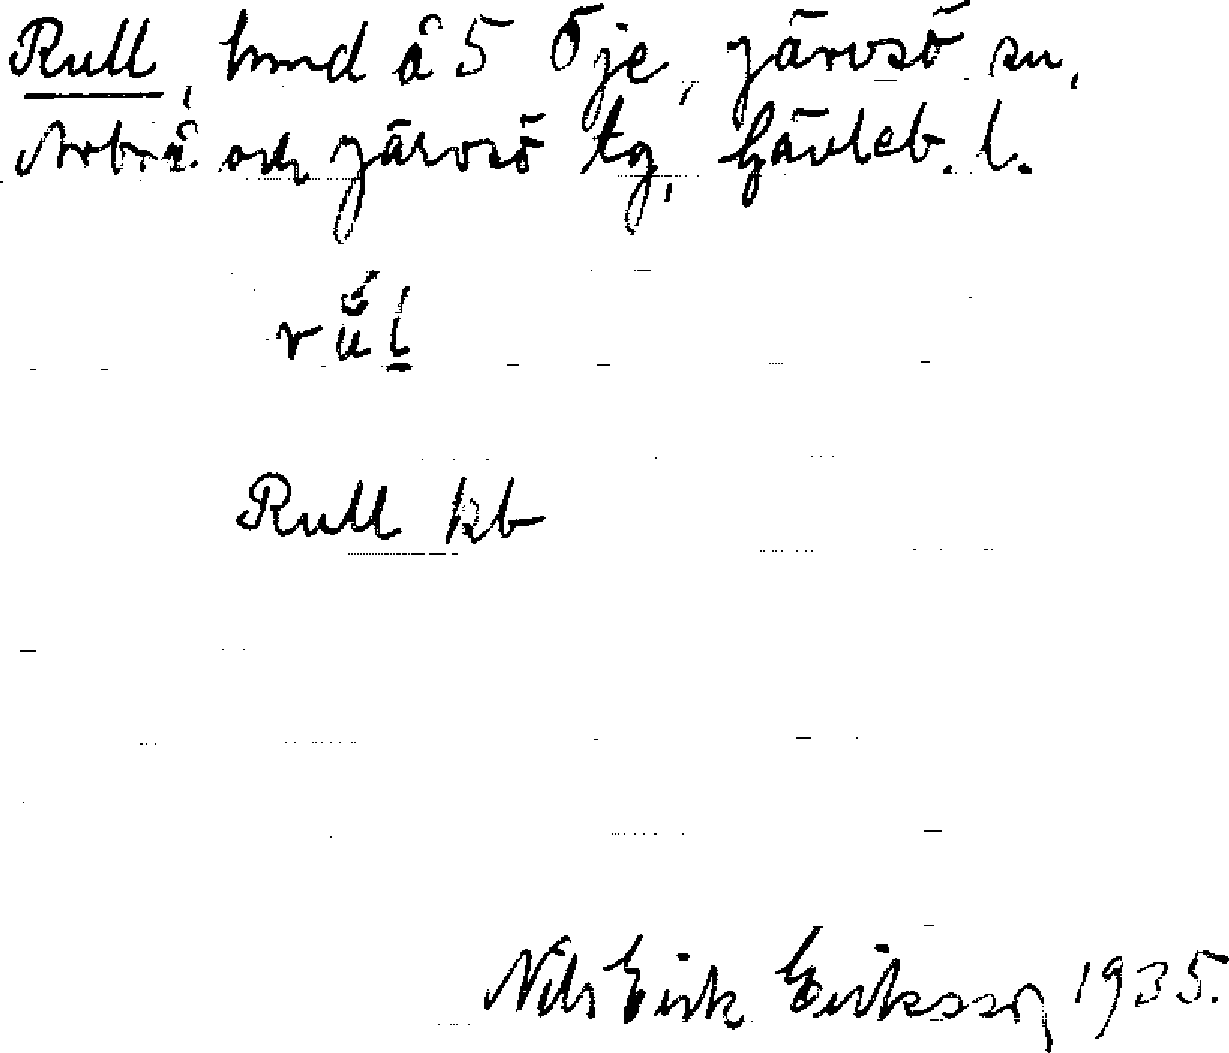 Rull, hmd å 5 Öje, Järvsö sn,
Arbrå och Järvsö tg, Gävleb. l.
Rull kb
Nils Erik Eriksson 1935.